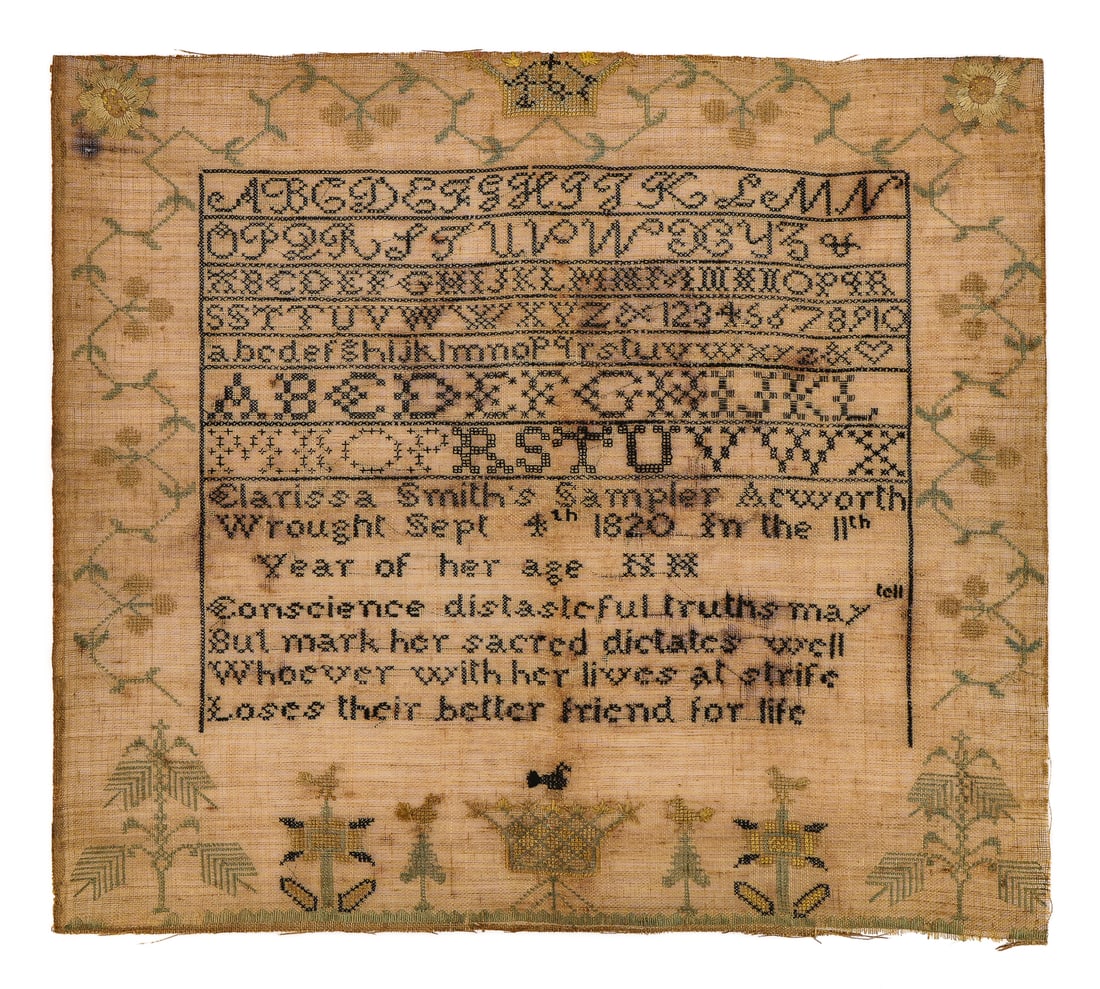 ABCDEFGHIJK LMN
OPQRSTUVWXYZ &
ABCDEFGHIJKL OPQR
SSTTUVWWXYZ&12345678910
abcdefghijklmnopqrstuvwxyz&♡
ABCDEFGHIJKL
MNOPRSTUVWX
Clarissa Smith's Sampler Acworth
Wrought Sept 4th 1820 In the 11th
Year of her age
Conscience distasteful truths may tell
But mark her sacred dictates well
Whoever with her lives at strife
Loses their better friend for life